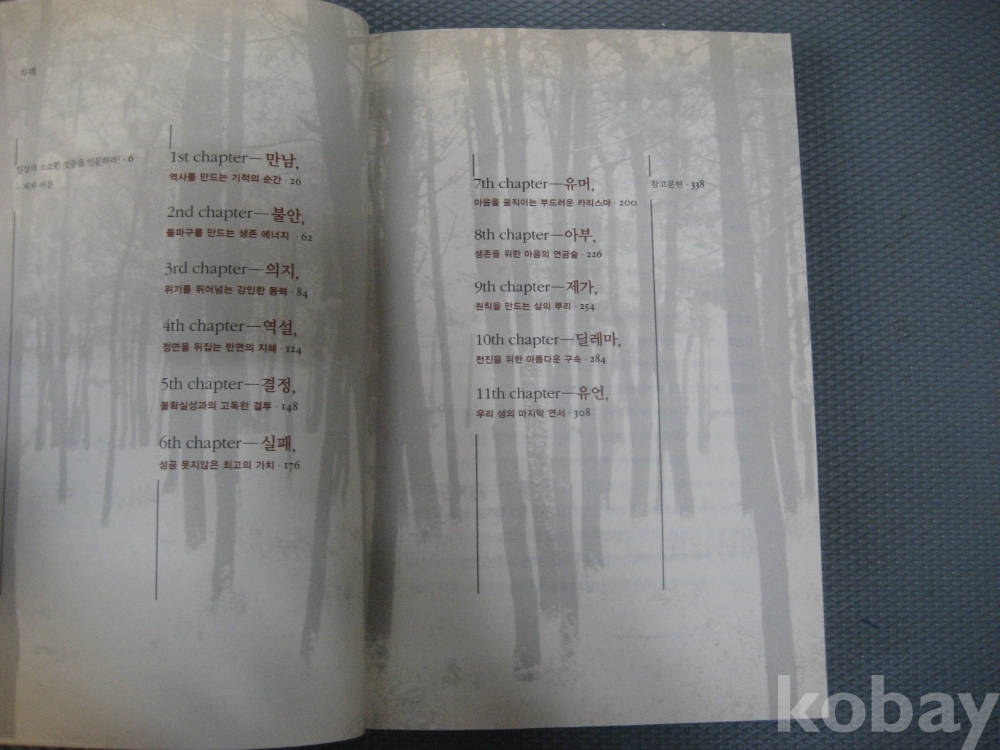 차례
일상의 소소한 것들을 인문하라! · 6
– 저자 서문
1st chapter—만남,
역사를 만드는 기적의 순간 · 26
2nd chapter—불안,
돌파구를 만드는 생존 에너지 · 62
3rd chapter—의지,
위기를 뛰어넘는 강인한 동력 · 84
4th chapter—역설,
정면을 뒤집는 반면의 지혜 · 124
5th chapter—결정,
불확실성과의 고독한 결투 · 148
6th chapter—실패,
성공 못지않은 최고의 가치 · 176
7th chapter—유머,
마음을 움직이는 부드러운 카리스마 · 200
8th chapter—아부,
생존을 위한 마음의 연금술 · 226
9th chapter—제가,
원칙을 만드는 삶의 뿌리 · 254
10th chapter—딜레마,
전진을 위한 아름다운 구속 · 284
11th chapter—유언,
우리 생의 마지막 연서 · 308
참고문헌 · 338
kobay